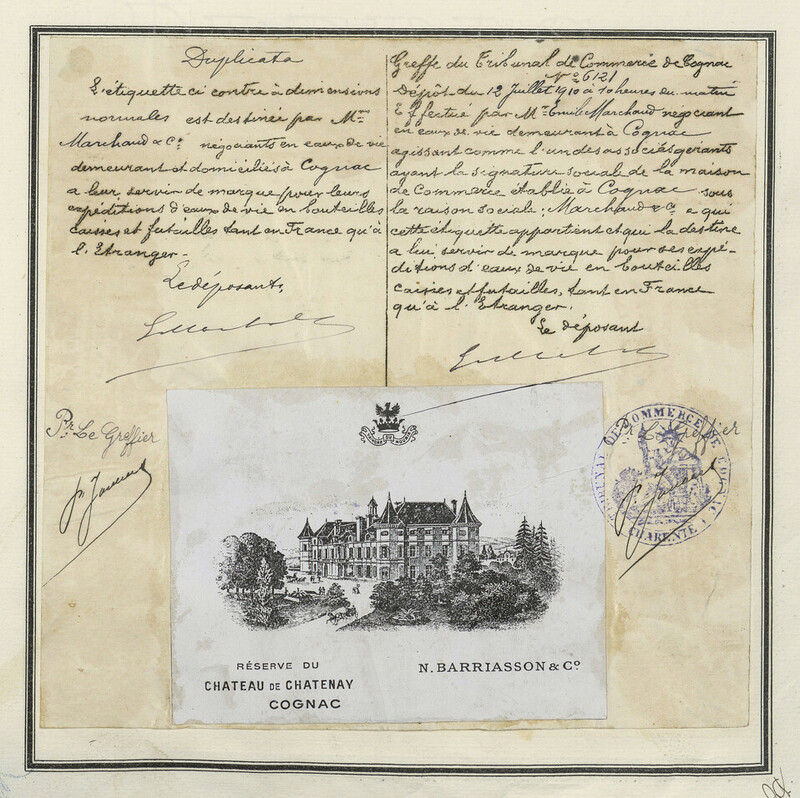 Duplicata
L'étiquette ci contre à dimensions
normales est destinée par Mrs
Marchaud & Co négociants en eaux de vie
demeurant et domiciliés à Cognac
a leur servir de marque pour leurs
expéditions d'eaux de vie en bouteilles
caisses et futailles tant en France qu'à
l'Etranger.
Le déposant,
Pr Le Greffier
Greffe du Tribunal de Commerce de Cognac
No 6121
Dépôt du 12 Juillet 1910 à 10 heures du matin
Effectué par Mr Emile Marchaud négociant
en eaux de vie demeurant à Cognac
agissant comme l'un des associés gérants
ayant la signature sociale de la maison
de Commerce établie à Cognac sous
la raison sociale: Marchaud & Co a qui
cette étiquette appartient et qui la destine
a lui servir de marque pour ses expé-
ditions d'eaux de vie en bouteilles
caisses et futailles, tant en France
qu'à l'Etranger.
Le déposant
Pr Le Greffier
TRIBUNAL DE COMMERCE DE COGNAC
CHARENTE
RÉSERVE DU
CHATEAU DE CHATENAY
COGNAC
N. BARRIASSON & Co.